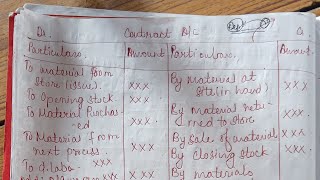 Dr. Contract A/c Cr
Particulars. Amount Particulars. Amount.
To material from
store (issue). xxx
By Material at
site (in hand) xxx
To Opening stock. xxx
To Material Purchas
-ed xxx
By Material retu
rned to store xxx
To Material from
next process. xxx
By Sale of material xxx
By closing stock xxx
xxx
By materials